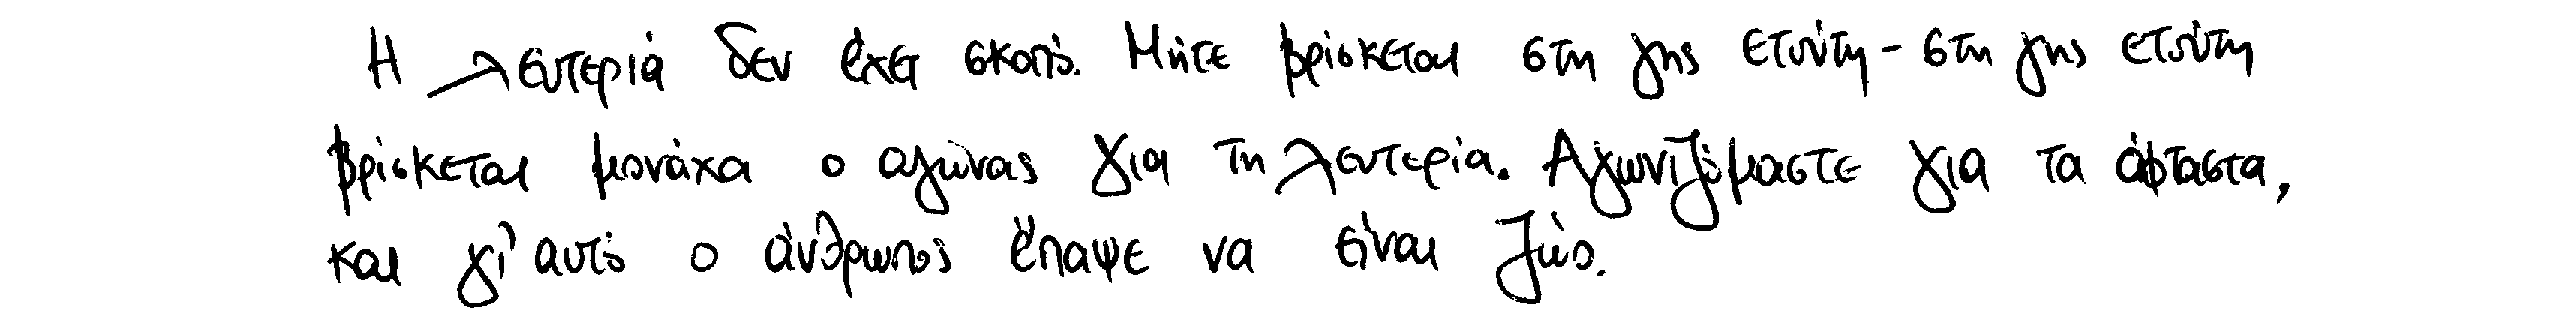 Η λευτεριά δεν έχει σκοπό. Μήτε βρίσκεται στη γης ετούτη - στη γης ετούτη
βρίσκεται μονάχα ο αγώνας για τη λευτερία. Αγωνιζόμαστε για τα άφταστα,
και γι' αυτό ο άνθρωπος έπαψε να είναι ζώο.